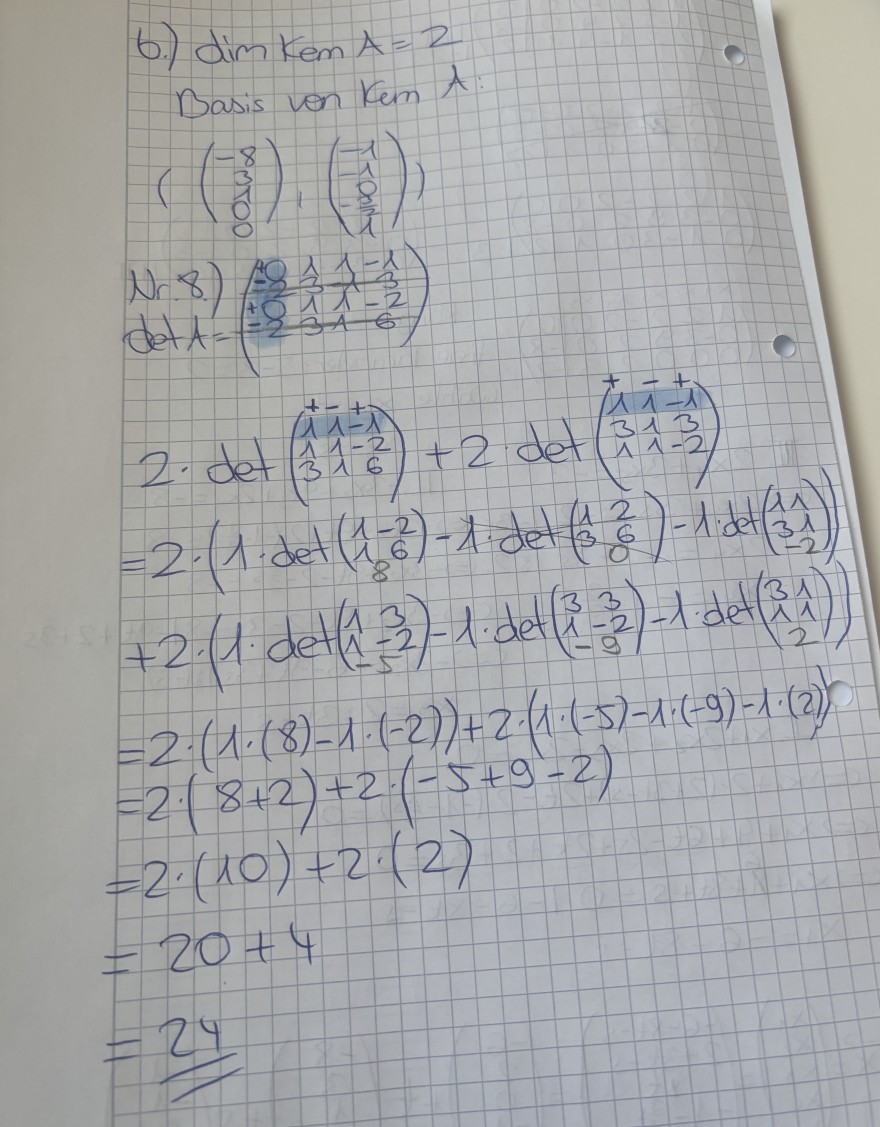 b.) dim Kern A = 2
Basis von Kern A:
( (-8 3 1 0 0), (-1 -1 0 -3 1) )
Nr. 8.)
det A =
+0 1 1 -1
-2 3 1 3
+0 1 1 -2
-2 3 1 6
+ - +
1 1 -1
1 1 -2
3 1 6
+ - +
1 1 -1
3 1 3
1 1 -2
2 · det ( ) + 2 · det ( )
= 2 · (1 · det (1 -2 1 6) - 1 · det (1 2 3 6) - 1 · det (1 1 3 1))
8 0 -2
+ 2 · (1 · det (1 3 1 -2) - 1 · det (3 3 1 -2) - 1 · det (3 1 1 1))
-5 -9 2
= 2 · (1 · (8) - 1 · (-2)) + 2 · (1 · (-5) - 1 · (-9) - 1 · (2))
= 2 · (8 + 2) + 2 · (-5 + 9 - 2)
= 2 · (10) + 2 · (2)
= 20 + 4
= 24